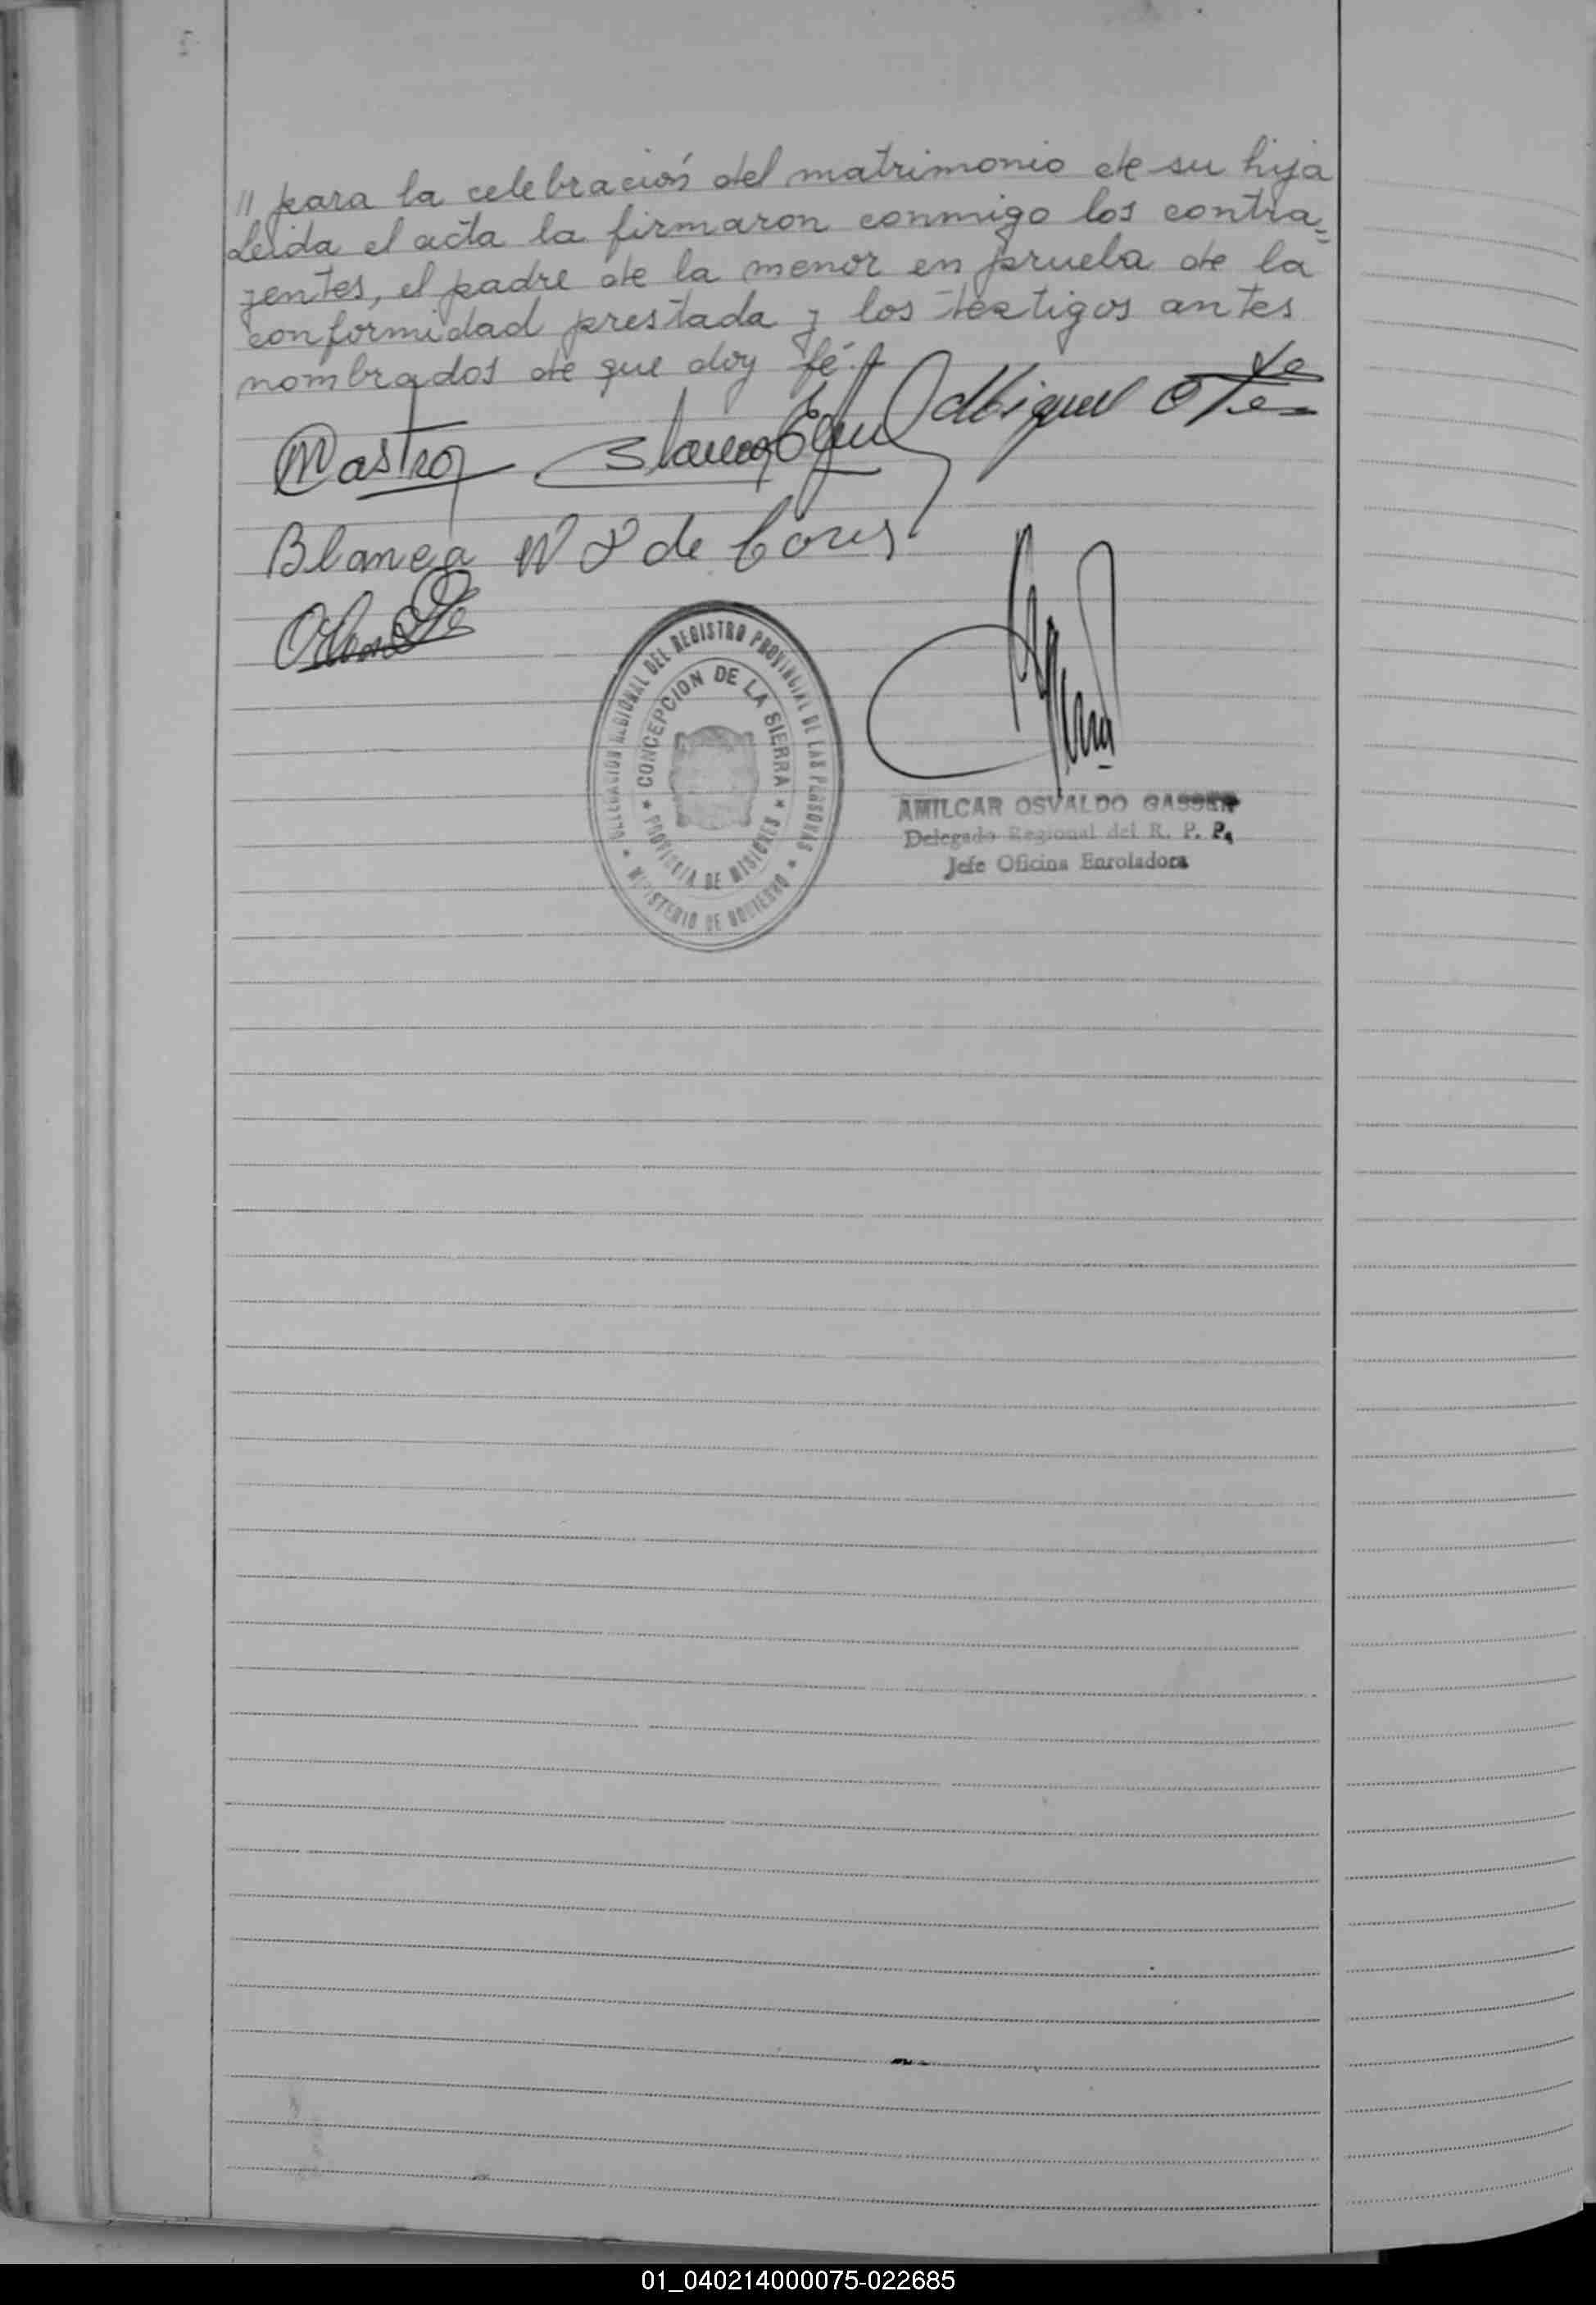 " para la celebración del matrimonio de su hija
Leida el acta la firmaron conmigo los contra=
yentes, el padre de la menor en prueba de la
conformidad prestada y los testigos antes
nombrados de que doy fé.
Miguel
Blanca de
DELEGACION REGIONAL DEL REGISTRO PROVINCIAL DE LAS PERSONAS
* MINISTERIO DE GOBIERNO *
CONCEPCION DE LA SIERRA
* PROVINCIA DE MISIONES *
AMILCAR OSVALDO GASSER
Delegado Regional del R. P. P.
Jefe Oficina Enroladora
01_040214000075-022685